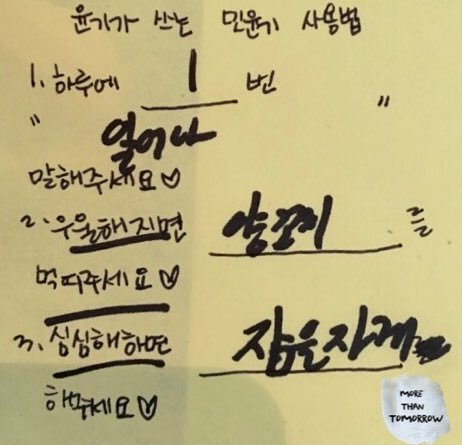 윤기가 쓰는 민윤기 사용법
1. 하루에 1 번
" 일어나 "
말해주세요♡
2. 우울해지면 양꼬치 를
먹여주세요♡
3. 심심해하면
해주세요♡
MORE
THAN
TOMORROW